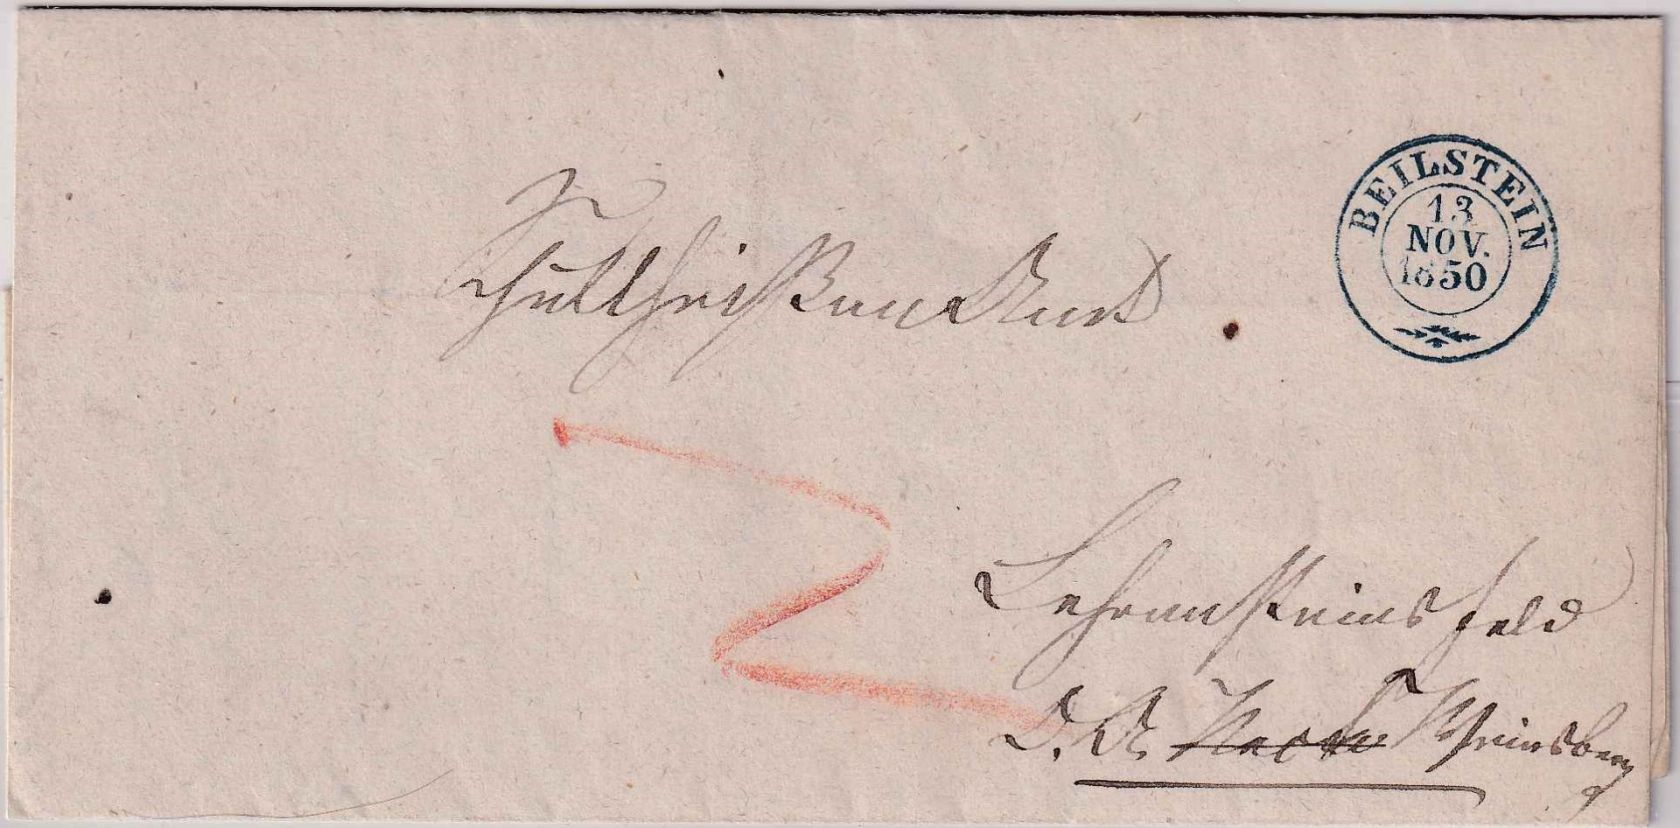 BEILSTEIN
13
NOV.
1850
Schultheißen Amt
2
Lehrensteinsfeld
O. A. Weinsberg